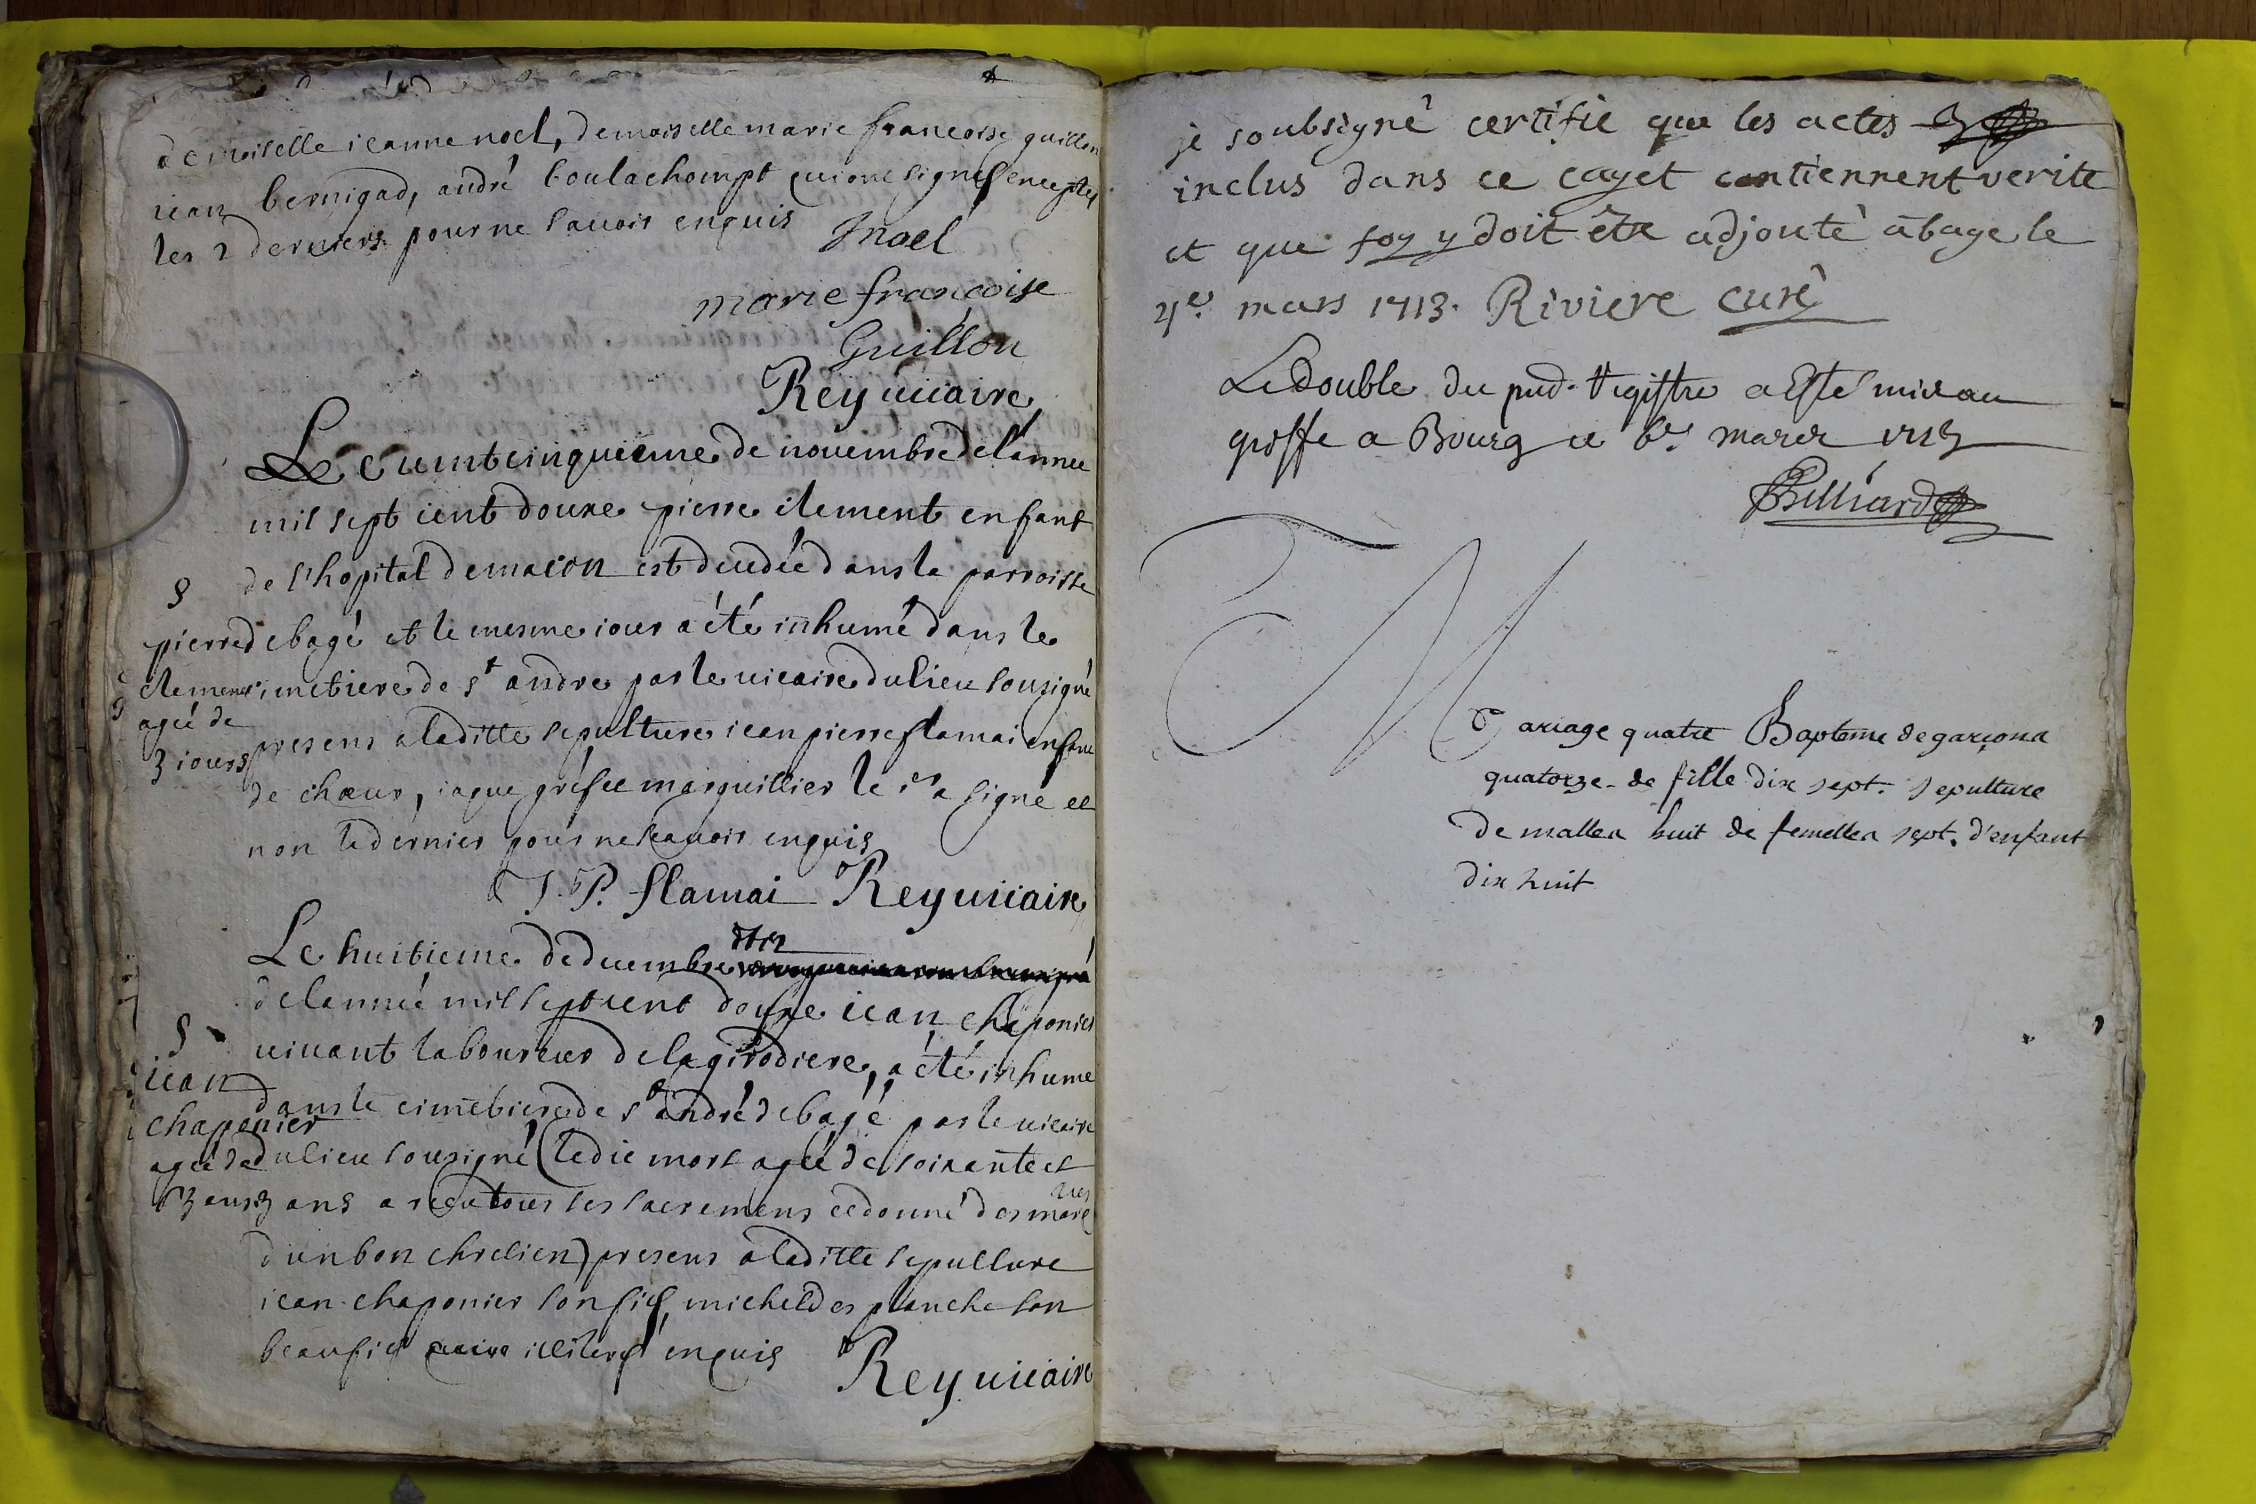 demoiselle ieanne noel, demoiselle marie francoise guillon
iean bernigad, andré boulachompt qui ont signés exceptés
les 2 derniers pour ne scauoir enquis Jnoel
marie françoise
Guillon
Rey uicaire
Le uuintcinquieme de nouembre de lannee
mil sept cent douze pierre clement enfant
de l'hopital de macon est decedée dans la parroisse
S
pierre
clement
agée de
3 iours
de bagé et le mesme iour a été inhumé dans le
cimetiere de st andre par le uicaire du lieu sousigné
presens a laditte sepulture iean pierre flamai enfant
de chœur, iaque gréfee marguillier le 1er a signé et
non le dernier pour ne scauoir enquis
J. P. flamai Rey uicaire
Le huitieme de decembre
de lannée mil sept cent douze iean chaponier
uiuant laboureur de la girodiere, a été inhumé
S
iean
chaponier
agée de
73 ans
dans le cimetiere de st andré de bagé par le uicaire
du lieu sousigné (ledit mort agée de soixante et
3 ans a receu tous les sacremens et donné des marques
d'un bon chretien) presens a laditte sepulture
iean chaponier son fils, michel des planche son
beaufils illiterés enquis Rey uicaire
je soubsigné certifie que les actes
inclus dans ce cayet contiennent verite
et que foy y doit être adjouté à bage le
4e. mars 1713. Riviere curé
Le double du pnd. Registre a Esté mis au
greffe a Bourg ce 6e. marcs 1713
Billiard
Mariage quatre Bapteme de garçons
quatorze de fille dix sept. sepulture
de malles huit de femelles sept. d'enfant
dix huit